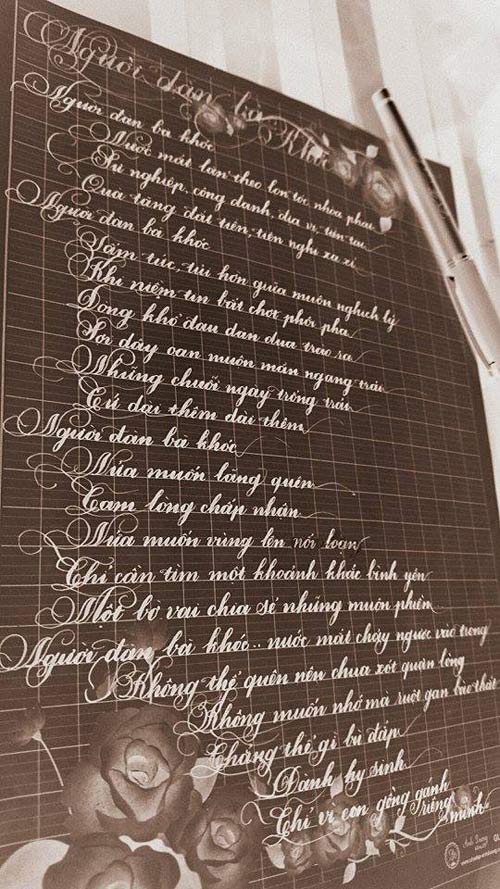 Người đàn bà Khóc
Người đàn bà khóc
Nước mắt lăn theo lọn tóc nhựa phai
Sự nghiệp, công danh, địa vị, tiền tài
Quà tặng đắt tiền, tiện nghi xa xỉ
Người đàn bà khóc
Sấm tức, tủi hờn giữa muôn nghịch lý
Khi niệm tin bất chợt phôi pha
Sóng khổ đau đan đưa trào ra
Sợi dây oan muôn màn ngang trái
Những chuỗi ngày trống trải
Cứ dài thêm dài thêm
Người đàn bà khóc
Nửa muốn lãng quên
Cam lòng chấp nhận
Nửa muốn vùng lên nổi loạn
Chỉ cần tìm một khoảnh khắc bình yên
Một bờ vai chia sẻ những muộn phiền
Người đàn bà khóc.. nước mắt chảy ngược vào trong
Không thể quên nên chua xót quặn lòng
Không muốn nhớ mà ruột gan thắt
Chẳng thể gì bù đắp
Đành hy sinh
Chỉ vì con gồng gánh
Riêng mình